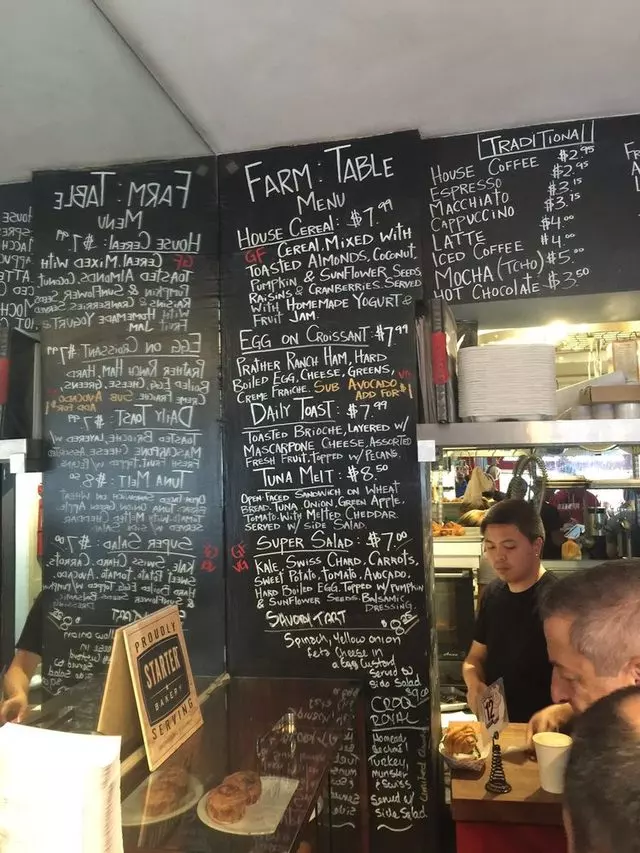 FARM : TABLE
MENU
HOUSE CEREAL: $7.99
GF CEREAL MIXED WITH
TOASTED ALMONDS, COCONUT,
PUMPKIN & SUNFLOWER SEEDS
RAISINS & CRANBERRIES. SERVED
WITH HOMEMADE YOGURT &
FRUIT JAM.
EGG ON CROISSANT $7.99
PRATHER RANCH HAM, HARD
BOILED EGG, CHEESE, GREENS,
CREME FRAICHE. SUB AVOCADO
ADD FOR $1
DAILY TOAST: $7.99
TOASTED BRIOCHE, LAYERED W/
MASCARPONE CHEESE, ASSORTED
FRESH FRUIT. TOPPED W/ PECANS.
TUNA MELT: $8.50
OPEN-FACED SANDWICH ON WHEAT
BREAD. TUNA, ONION, GREEN APPLE,
TOMATO. WITH MELTED CHEDDAR.
SERVED W/ SIDE SALAD.
GF SUPER SALAD: $7.00
KALE, SWISS CHARD, CARROTS,
SWEET POTATO, TOMATO, AVOCADO,
HARD BOILED EGG. TOPPED W/ PUMPKIN
& SUNFLOWER SEEDS. BALSAMIC
DRESSING.
SAVORY TART
Spinach, Yellow onion
feta Cheese in
a egg custard
Served w/
Side Salad
$9.00
CROQ
ROYAL
Turkey,
Munster
& Swiss
Served w/
Side Salad
TRADITIONAL
HOUSE COFFEE $2.95
ESPRESSO $2.95
MACCHIATO $3.15
CAPPUCCINO $3.75
LATTE $4.00
ICED COFFEE $4.00
MOCHA (TCHO) $5.00
HOT CHOCOLATE $3.50
PROUDLY
STARTER
BAKERY
SERVING
12